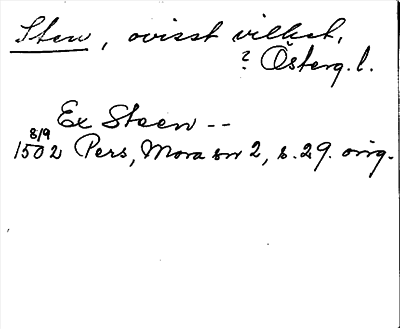 Sten, ovisst vilket,
? Österg. l.
Ex Steen --
8/9
1502 Pers, Mora sn 2, s. 29. orig.